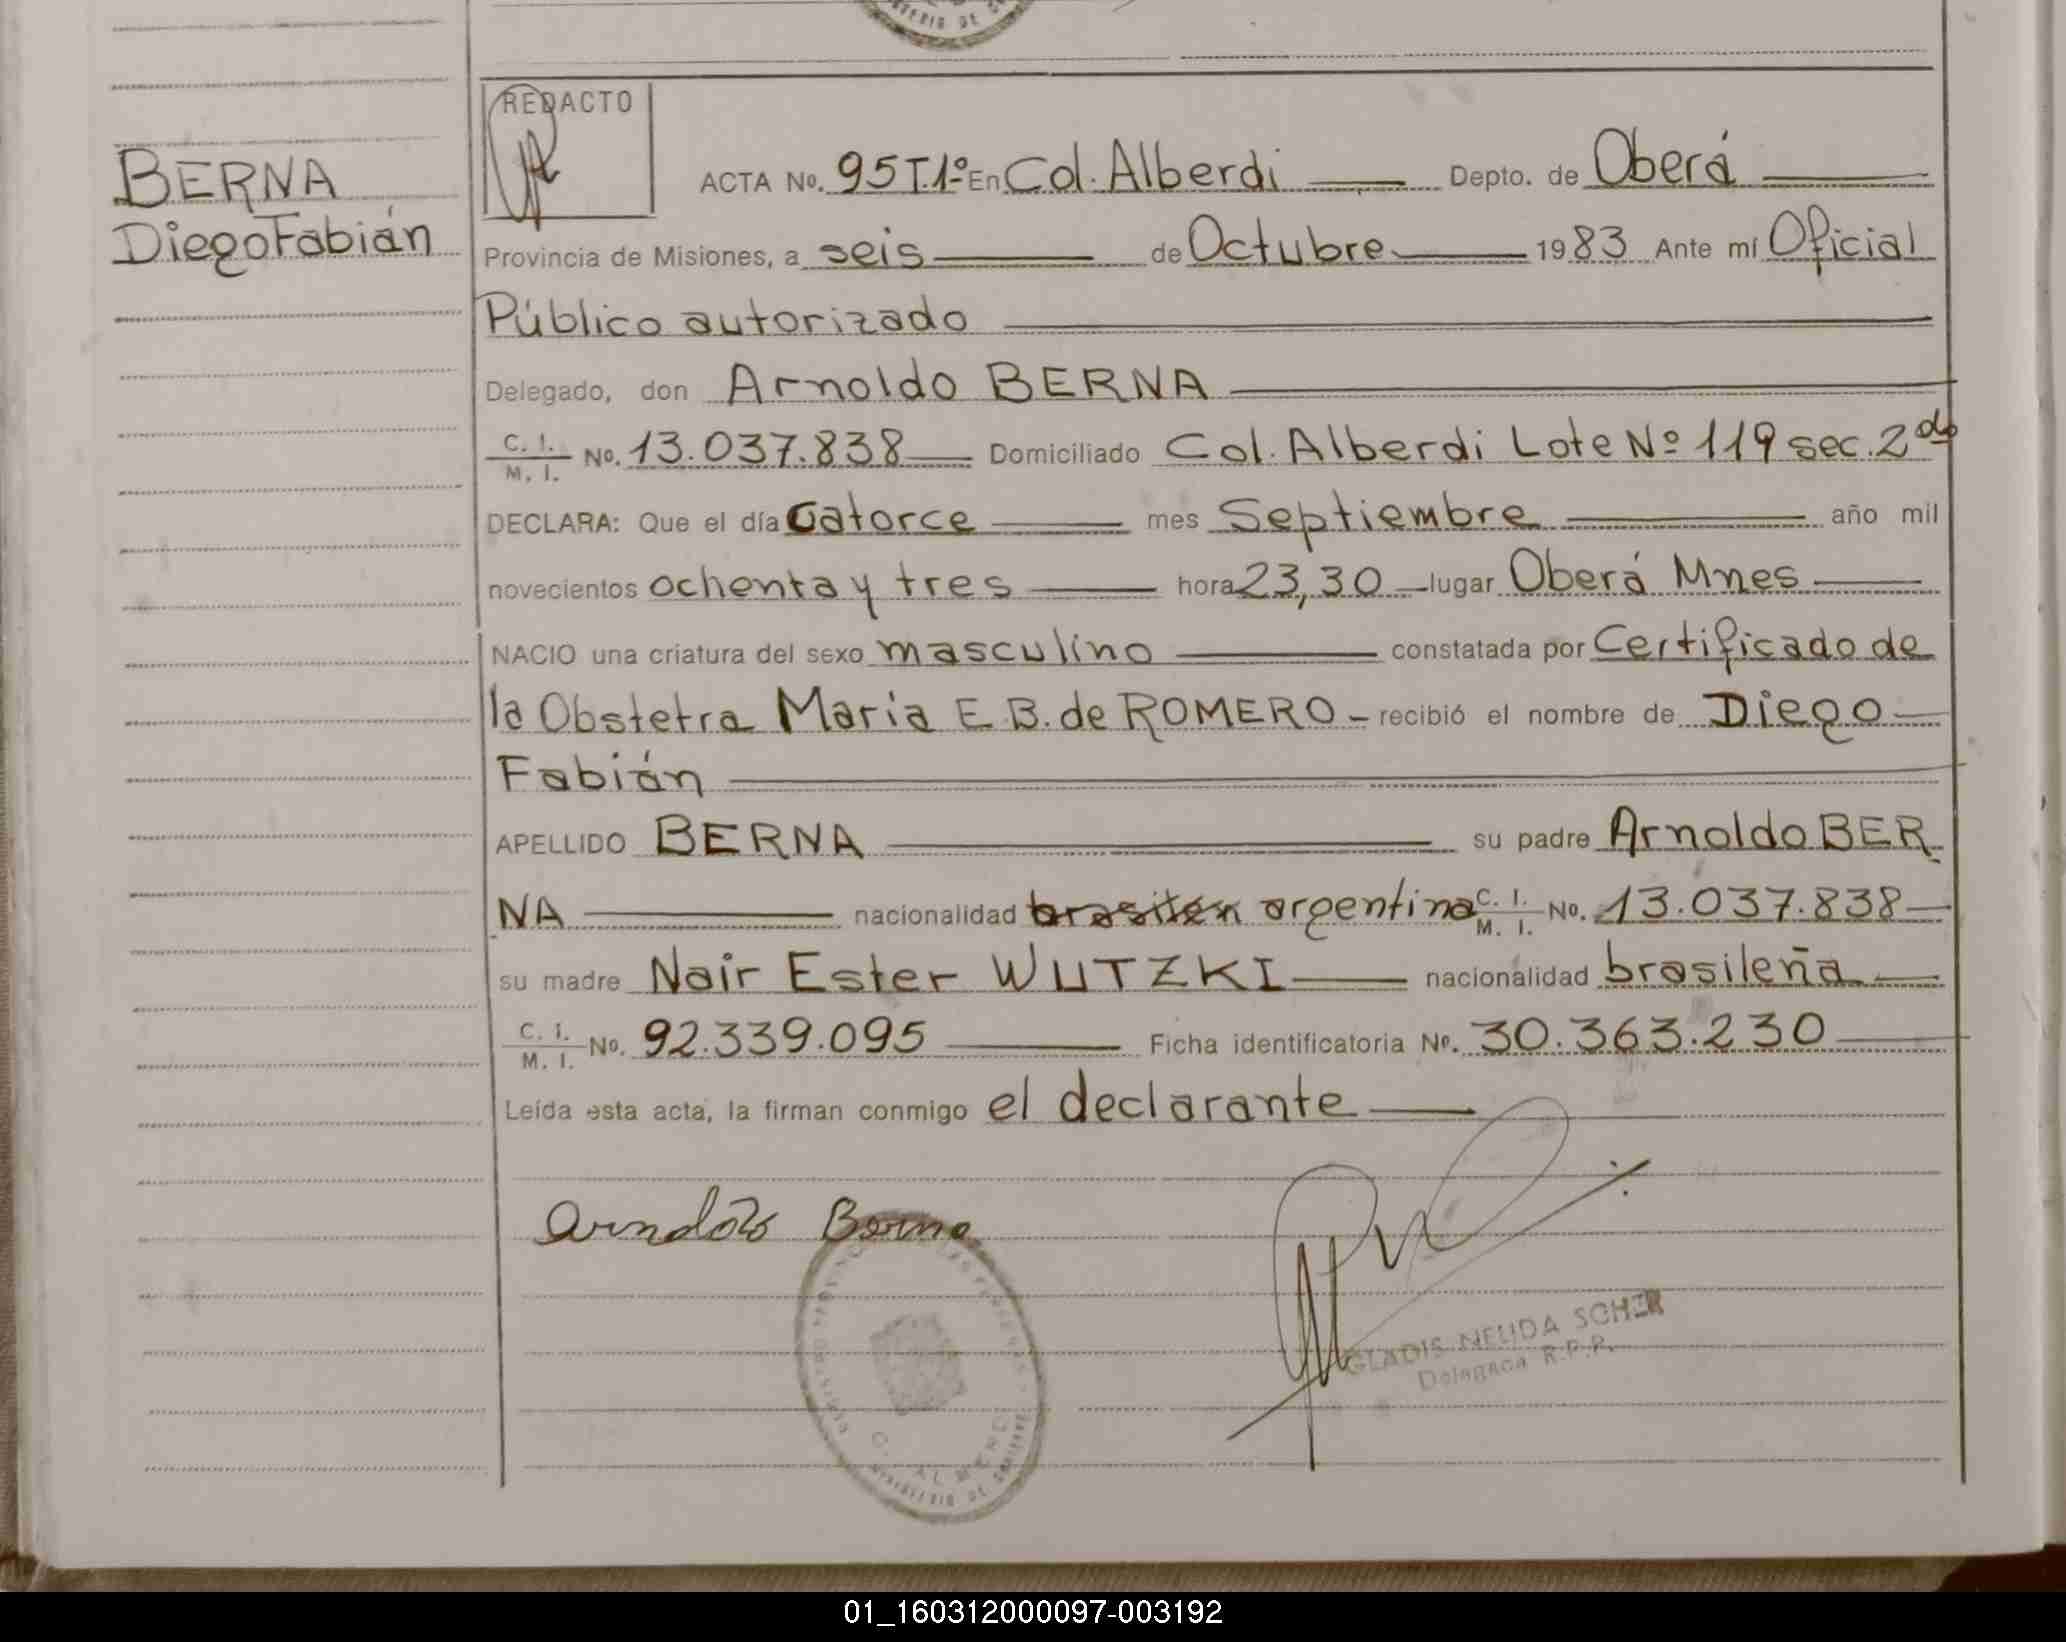 BERNA
Diego Fabián
REDACTO
ACTA No. 95 T.1º En Col. Alberdi Depto. de Oberá
Provincia de Misiones, a seis de Octubre 1983 Ante mí Oficial
Público autorizado
Delegado, don Arnoldo BERNA
C. I. / M. I. No. 13.037.838 Domiciliado Col. Alberdi Lote Nº 119 sec. 2da
DECLARA: Que el día Catorce mes Septiembre año mil
novecientos ochenta y tres hora 23,30 lugar Oberá Mnes
NACIO una criatura del sexo masculino constatada por Certificado de
la Obstetra María E.B. de ROMERO - recibió el nombre de Diego
Fabián
APELLIDO BERNA su padre Arnoldo BER
NA nacionalidad argentina C. I. / M. I. No. 13.037.838
su madre Nair Ester WUTZKI nacionalidad brasileña
C. I. / M. I. No. 92.339.095 Ficha identificatoria Nº. 30.363.230
Leída esta acta, la firman conmigo el declarante
Arnoldo Berna
GLADIS NELIDA
Delegada R.P.P.
01_160312000097-003192